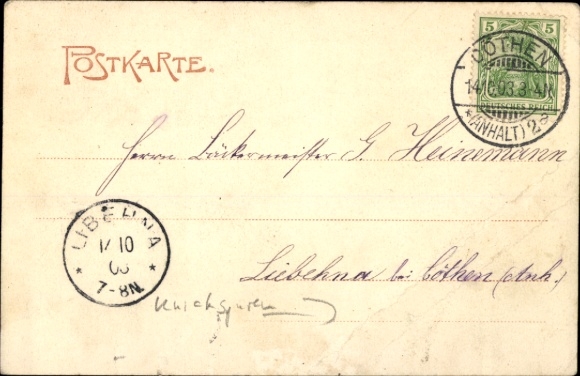 POSTKARTE.
5 5
DEUTSCHES REICH
CÖTHEN
14.10.03.3-4N.
*(ANHALT) 2a
Herrn Bäckermeister G. Heinemann
LIBEHNA
14 10
03
* 7-8N *
Liebehna bei Cöthen (Anh.
Knickspuren